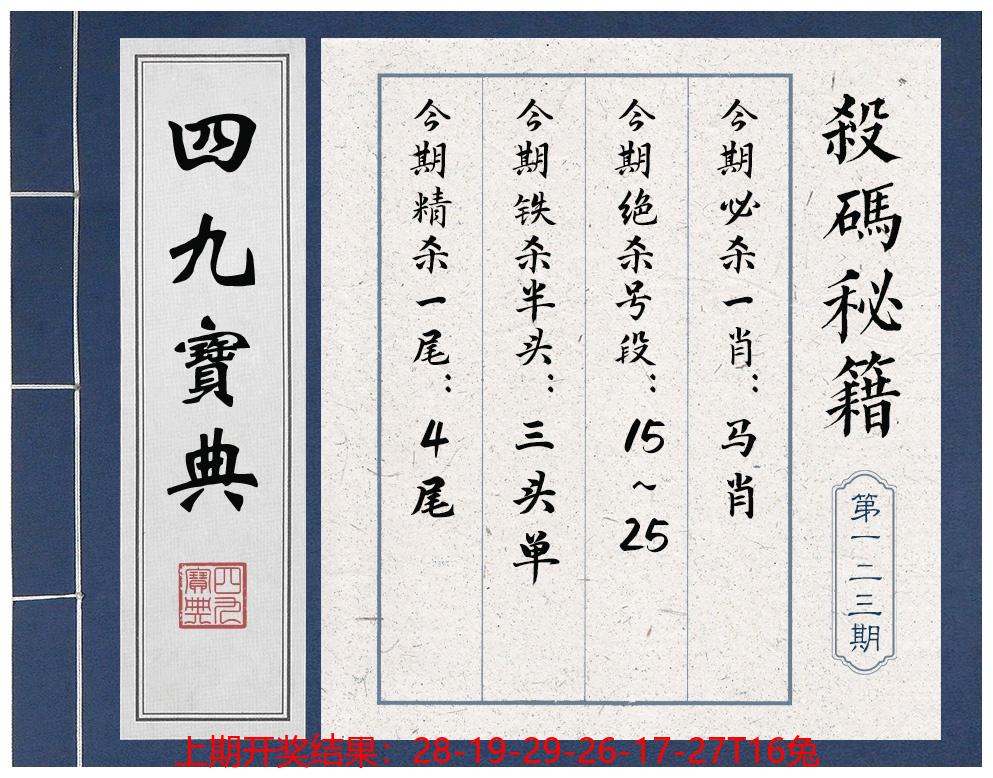 殺碼秘籍
第一二三期
今期必杀一肖：马肖
今期绝杀号段：15~25
今期铁杀半头：三头单
今期精杀一尾：4尾
四九寶典
四九寶典
上期开奖结果：28-19-29-26-17-27T16兔